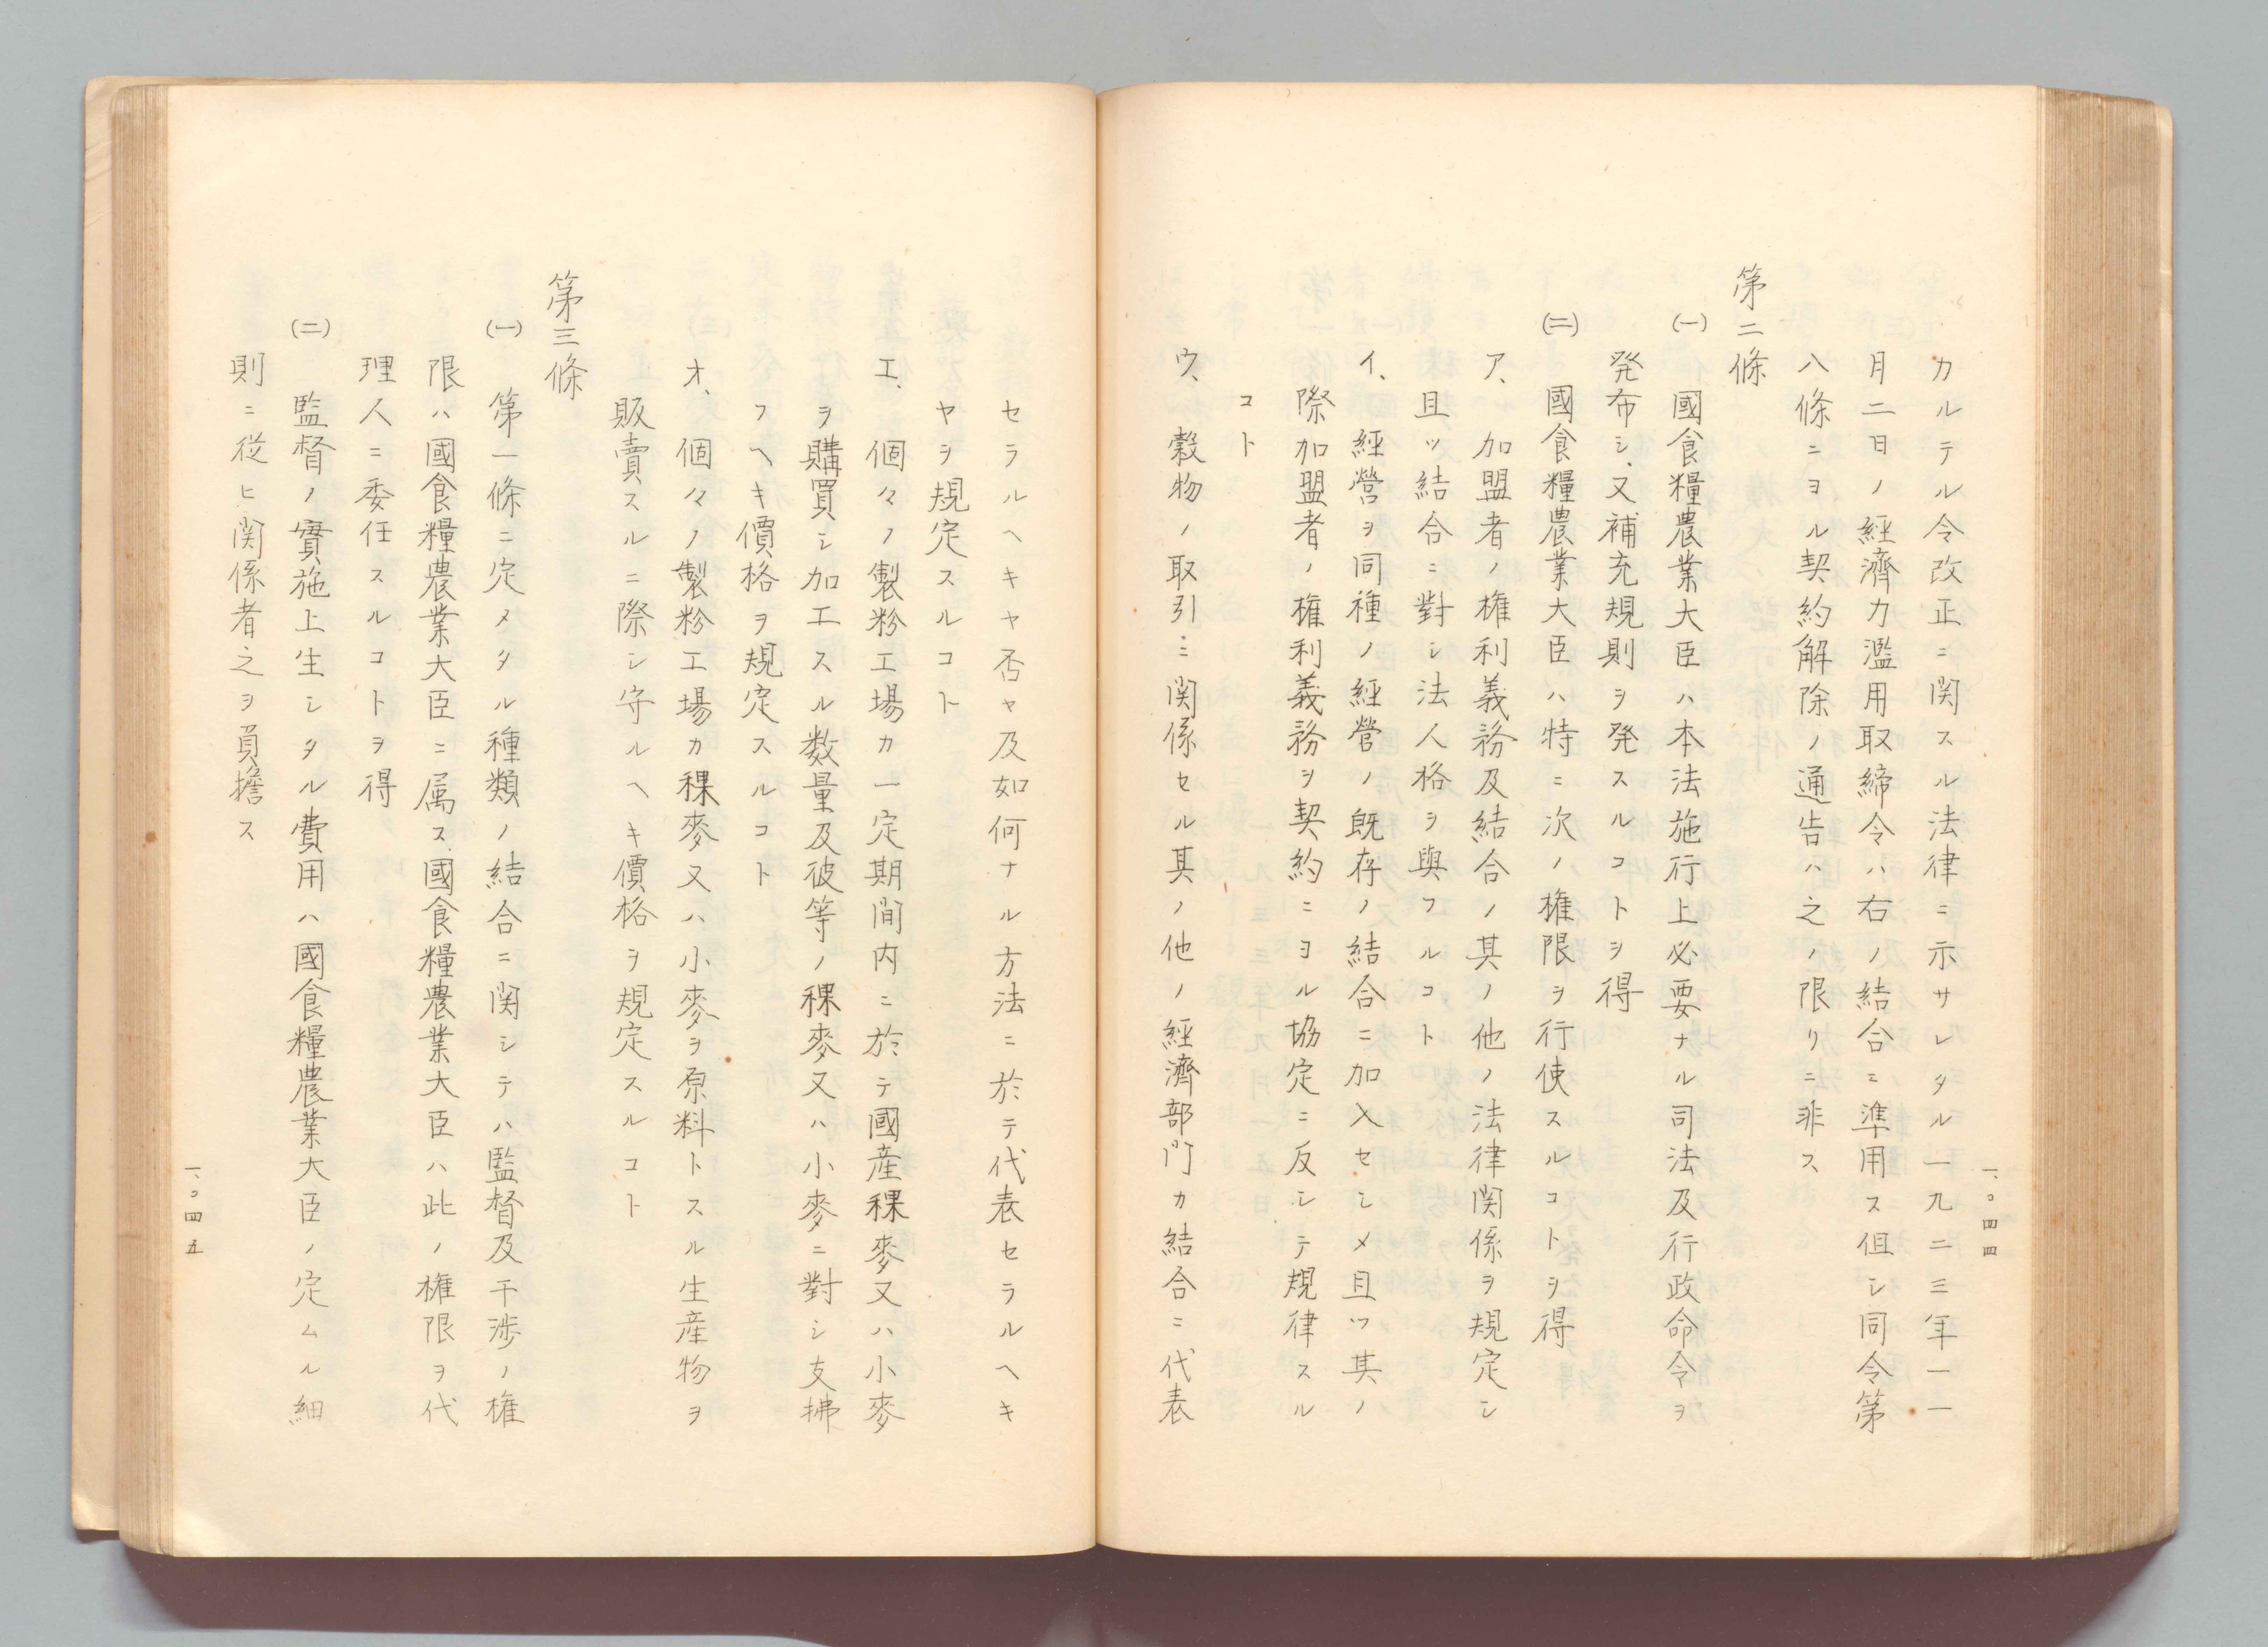 カルテル令改正ニ関スル法律ニ示サレタル一九二三年一一
月二日ノ経濟力濫用取締令ハ右ノ結合ニ準用ス但シ同令第
八條ニヨル契約解除ノ通告ハ之ノ限リニ非ス
第二條
(一) 國食糧農業大臣ハ本法施行上必要ナル司法及行政命令ヲ
発布シ、又補充規則ヲ発スルコトヲ得
(二) 國食糧農業大臣ハ特ニ次ノ権限ヲ行使スルコトヲ得
ア、加盟者ノ権利義務及結合ノ其ノ他ノ法律関係ヲ規定シ
且ツ結合ニ對シ法人格ヲ與フルコト
イ、経營ヲ同種ノ経營ノ既存ノ結合ニ加入セシメ且ツ其ノ
際加盟者ノ権利義務ヲ契約ニヨル協定ニ反シテ規律スル
コト
ウ、穀物ノ取引ニ関係セル其ノ他ノ経濟部門カ結合ニ代表
一、〇四四
セラルヘキヤ否ヤ及如何ナル方法ニ於テ代表セラルヘキ
ヤヲ規定スルコト
エ、個々ノ製粉工場カ一定期間内ニ於テ國産稞麥又ハ小麥
ヲ購買シ加工スル数量及彼等ノ稞麥又ハ小麥ニ對シ支拂
フヘキ價格ヲ規定スルコト
オ、個々ノ製粉工場カ稞麥又ハ小麥ヲ原料トスル生産物ヲ
販賣スルニ際シ守ルヘキ價格ヲ規定スルコト
第三條
(一) 第一條ニ定メタル種類ノ結合ニ関シテハ監督及干渉ノ権
限ハ國食糧農業大臣ニ属ス國食糧農業大臣ハ此ノ権限ヲ代
理人ニ委任スルコトヲ得
(二) 監督ノ實施上生シタル費用ハ國食糧農業大臣ノ定ムル細
則ニ従ヒ関係者之ヲ負擔ス
一、〇四五